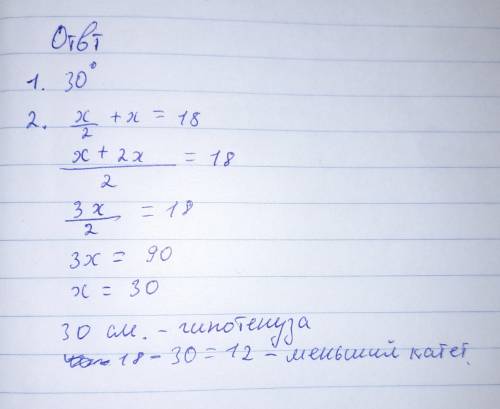 Отвт
1. 30°
2. x/2 + x = 18
x + 2x / 2 = 18
3x / 2 = 18
3x = 90
x = 30
30 см. - гипотенуза
18 - 30 = 12 - меньший катет.